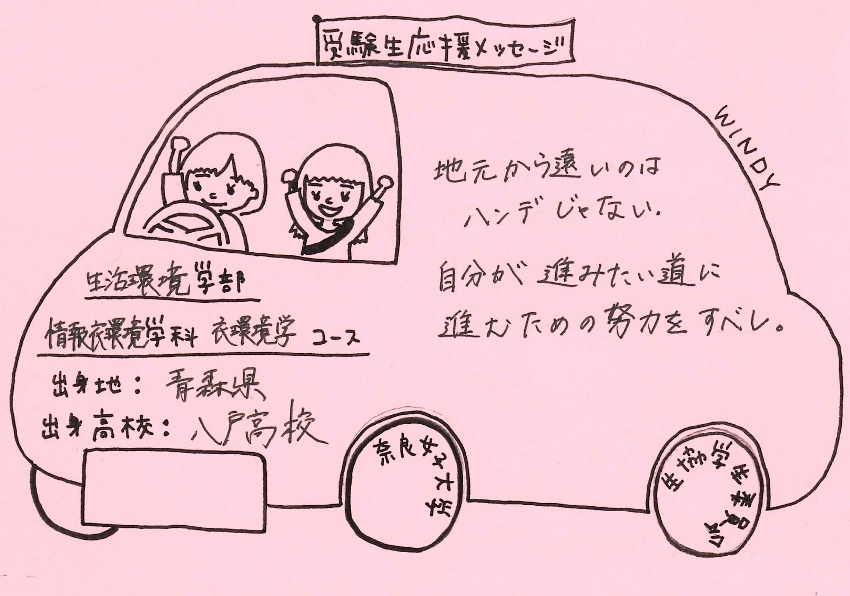 受験生応援メッセージ
WINDY
地元から遠いのは
ハンデじゃない.
自分が進みたい道に
進むための努力をすべし。
生活環境学部
情報衣環境学科 衣環境学コース
出身地: 青森県
出身高校: 八戸高校
奈良女子大学
生協学生委員会